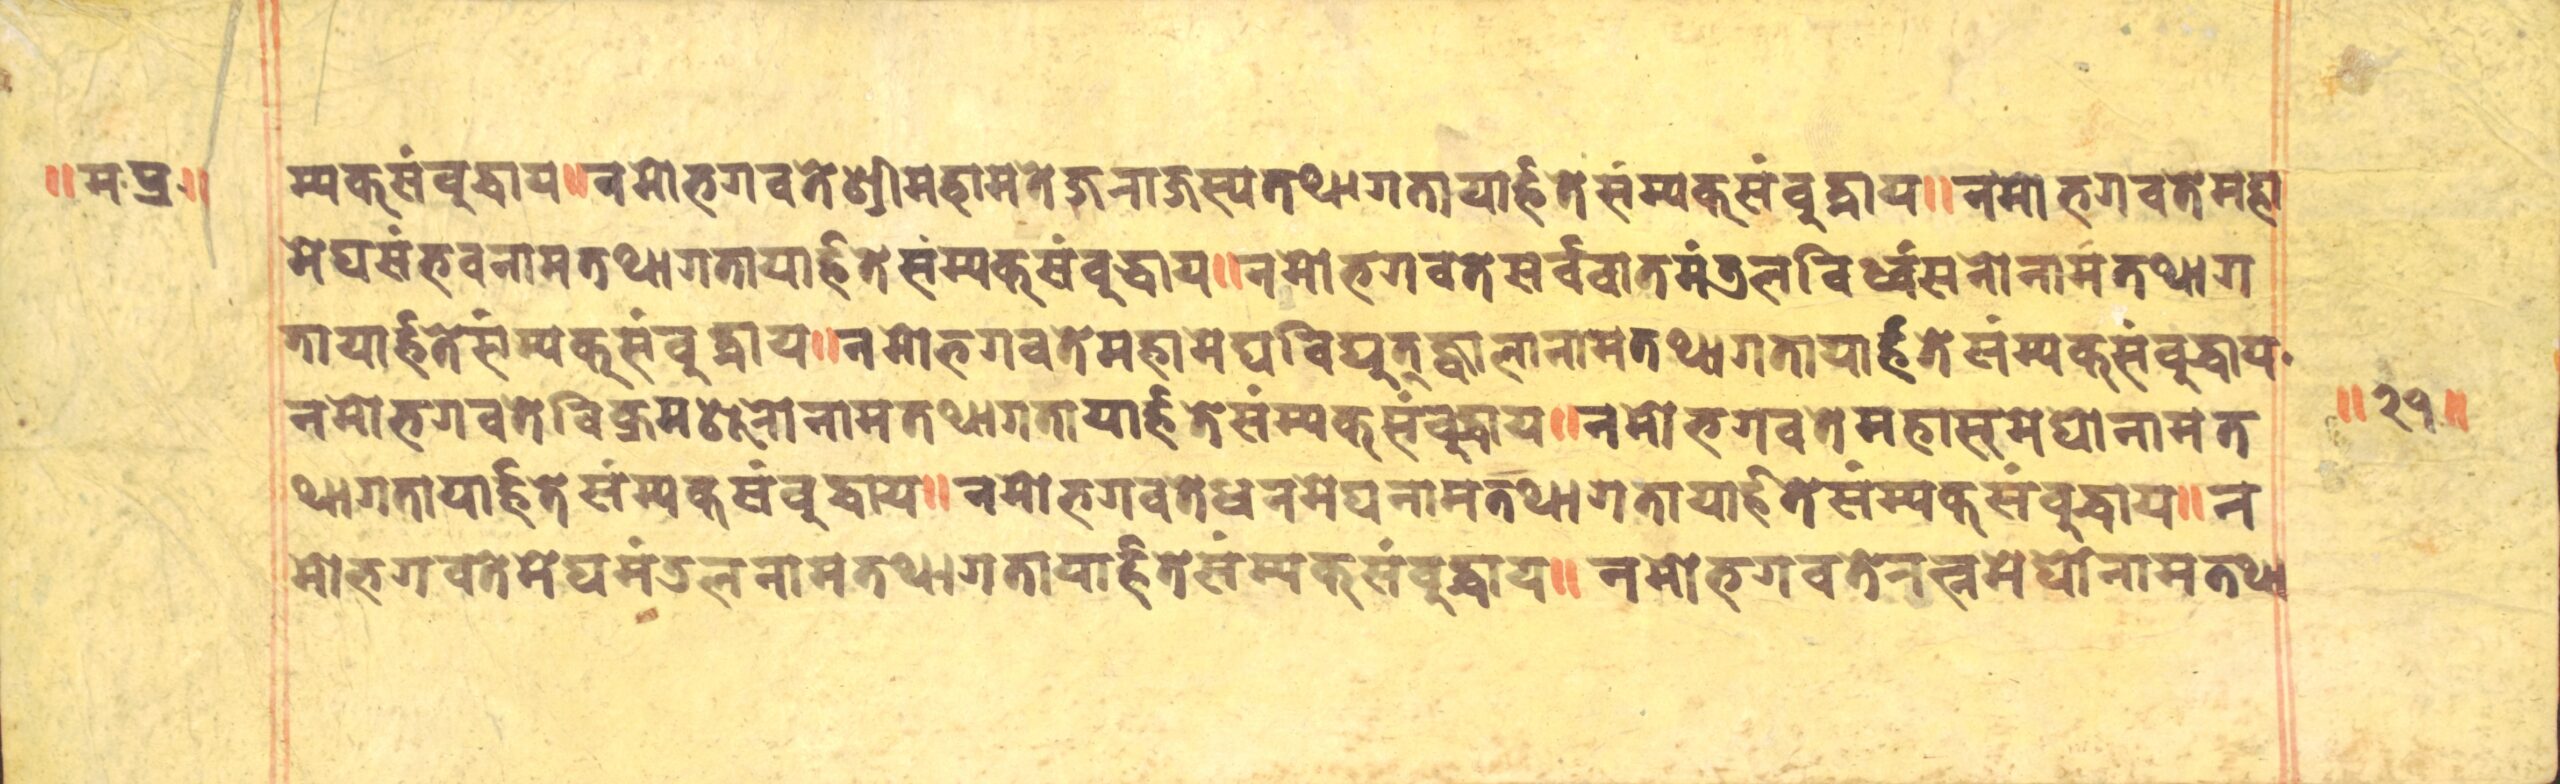 ॥म·प्र·॥
म्यक्संबुद्धाय॥नमोभगवतेश्रीमहामतेजनाजस्यतथागतायार्हतेसंम्यक्संबुद्धाय॥नमोभगवतेमहा
मेघसंभवनामतथागतायार्हतेसंम्यक्संबुद्धाय॥नमोभगवतेसर्ववातमंडलविर्ध्वंसनोनामतथाग
तायार्हतेसंम्यक्संबुद्धाय॥नमोभगवतेमहामेघविद्युत्ज्वालानामतथागतायार्हतेसंम्यक्संबुद्धाय·
नमोभगवतेविक्रमशेनोनामतथागतायार्हतेसंम्यक्संबुद्धाय॥नमोभगवतेमहासुमेघोनामत
थागतायार्हतेसंम्यक्संबुद्धाय॥नमोभगवतेधनमेघनामतथागतायार्हतेसंम्यक्संबुद्धाय॥न
मोभगवतेमेघमंडलनामतथागतायार्हतेसंम्यक्संबुद्धाय॥नमोभगवतेनत्नमेघोनामतथा
॥२१॥